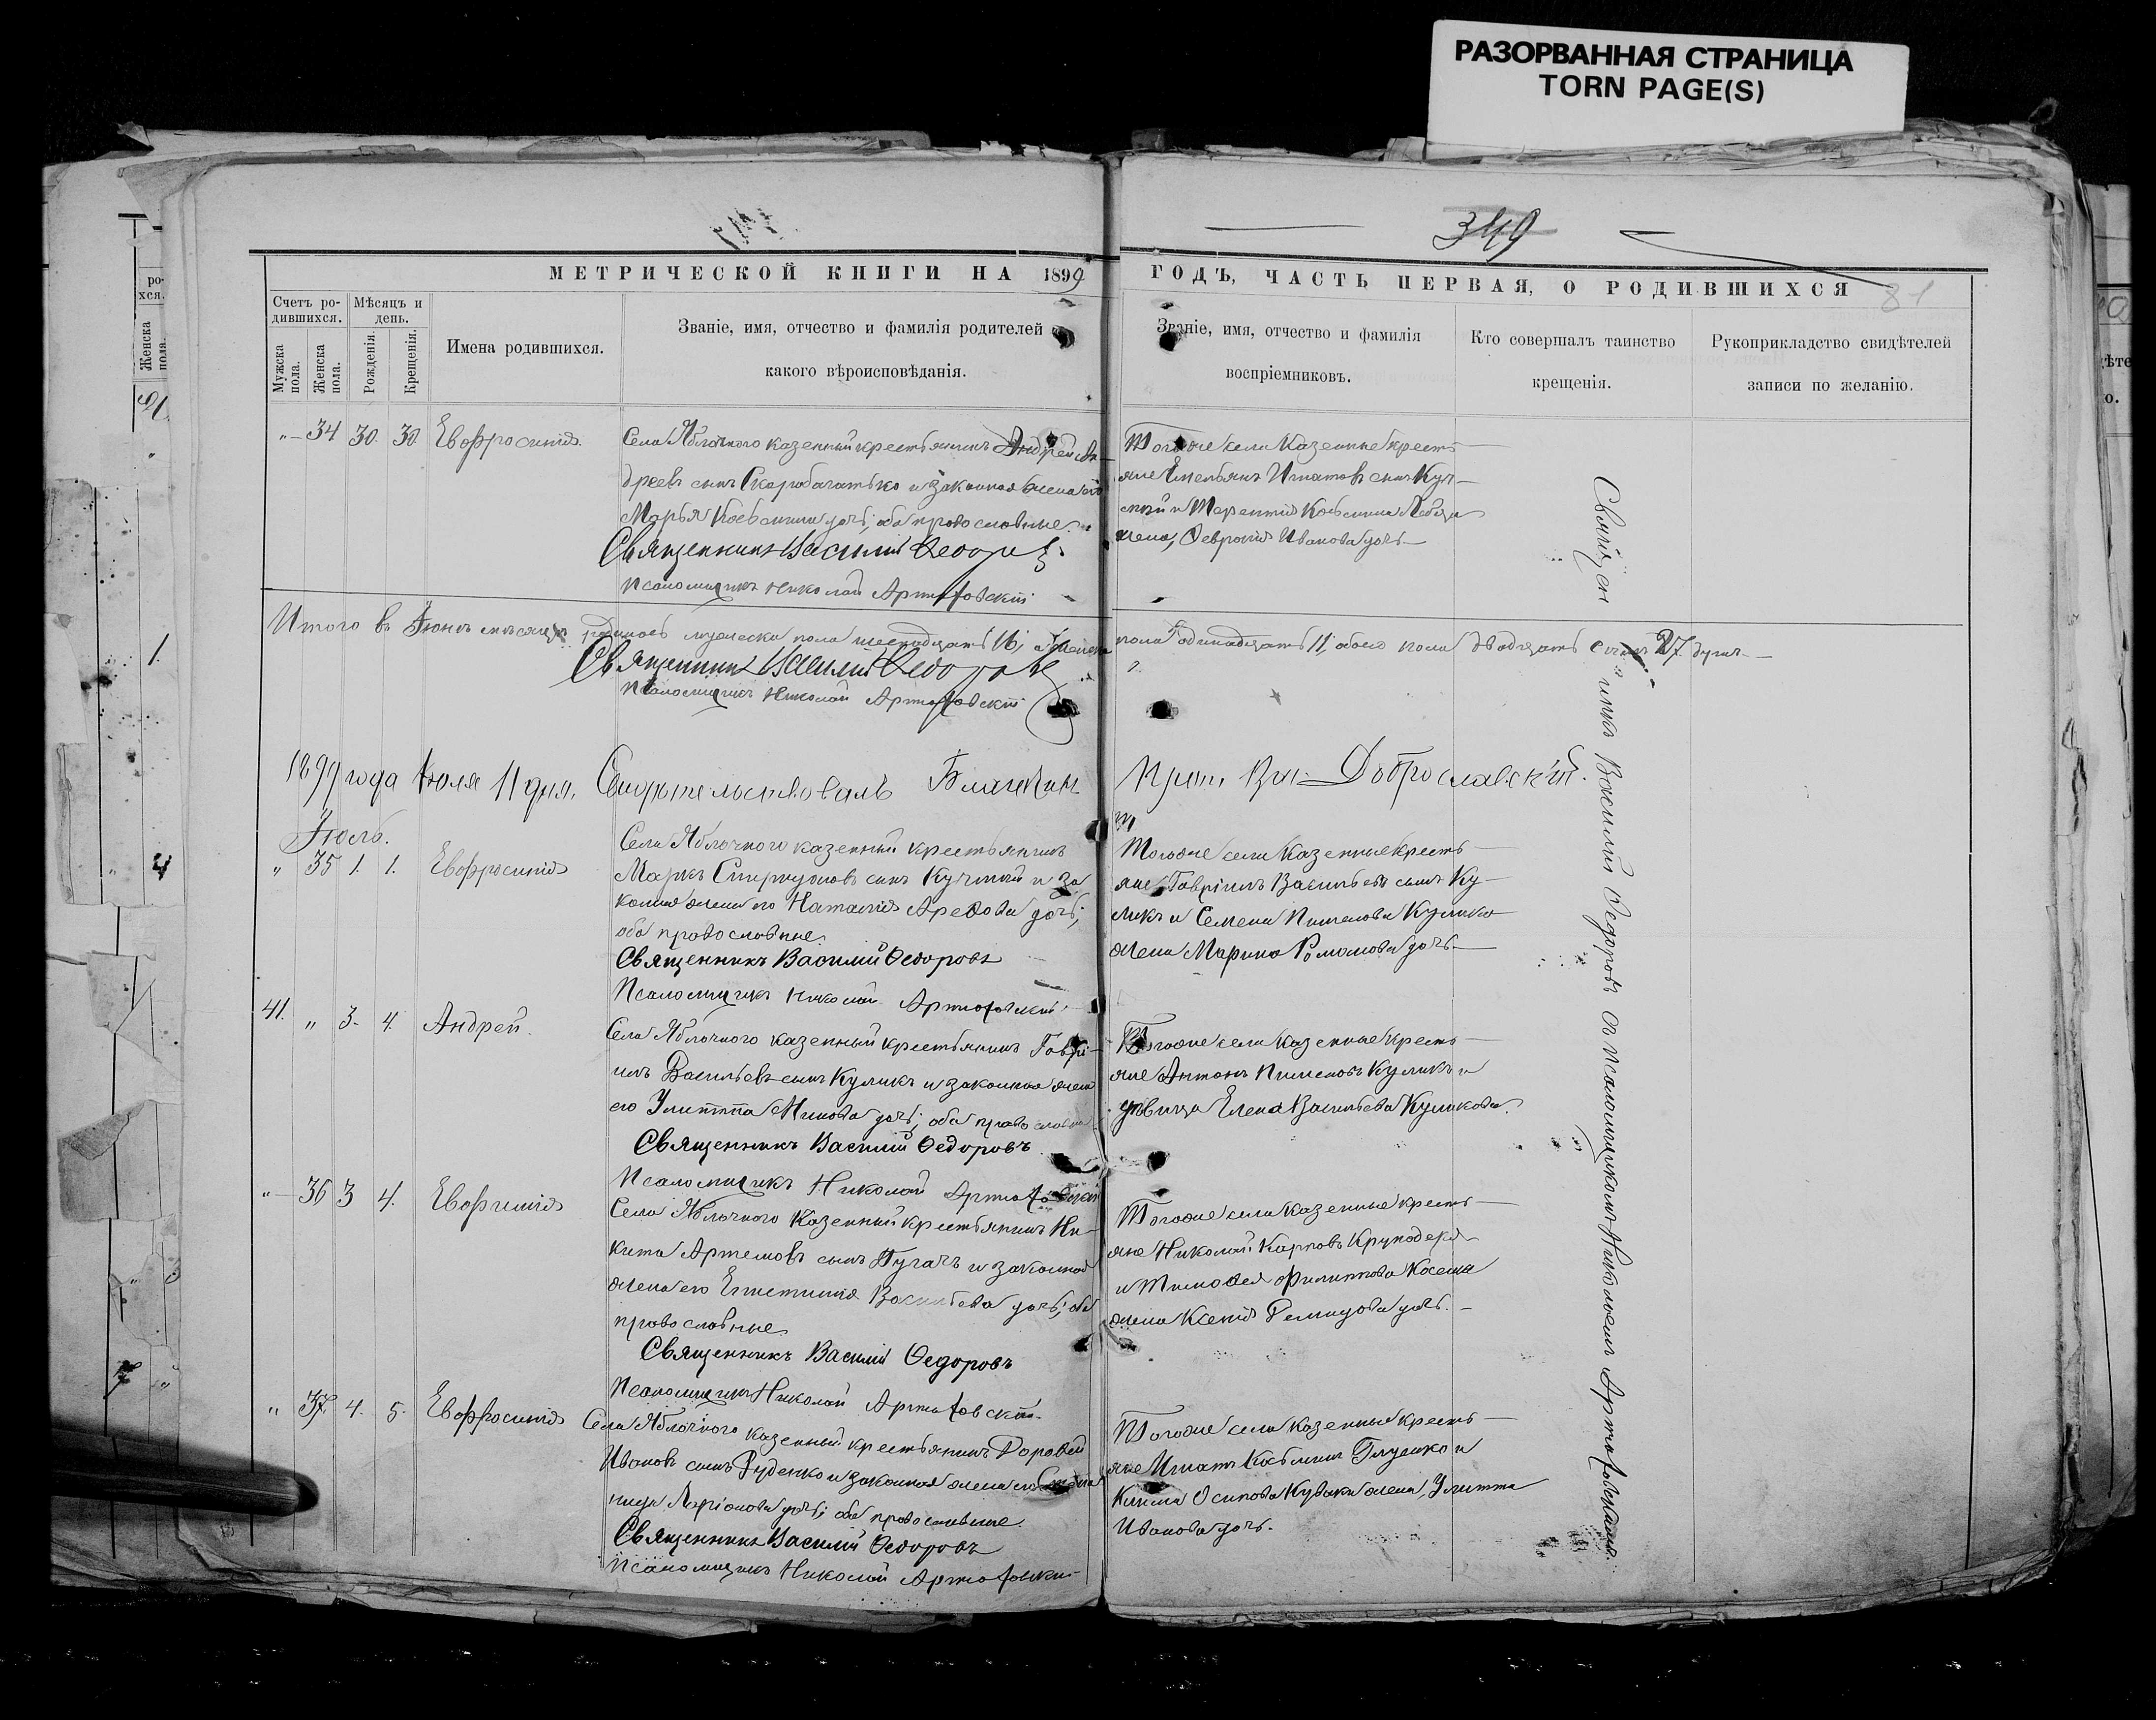 РАЗОРВАННАЯ СТРАНИЦА
TORN PAGE(S)
349
МЕТРИЧЕСКОЙ КНИГИ НА 1899 ГОДЪ, ЧАСТЬ ПЕРВАЯ, О РОДИВШИХСЯ
81
Счетъ ро-
дившихся.
Мѣсяцъ и
день.
Мужска
пола.
Женска
пола.
Рожденія.
Крещенія.
Имена родившихся.
Званіе, имя, отчество и фамилія родителей
какого вѣроисповѣданія.
Званіе, имя, отчество и фамилія
воспріемниковъ.
Кто совершалъ таинство
крещенія.
Рукоприкладство свидѣтелей
записи по желанію.
„ 34 30. 30. Евфросинія
Села Яблочного казенный крестьянинъ Андрей Ан-
дреевъ сынъ Скоробагатько и законная жена его
Марья дочь; оба православные.
Священникъ Василій Ѳедоровъ
Псаломщикъ Николай Артюховскій
Тогоже села казенные кресть-
яне Емельянъ Игнатовъ сынъ
жена, Ѳевронія Иванова дочь
Итого въ Іюнѣ мѣсяцѣ родилось мужеска пола шеснадцать 16, а женска пола одинадцать 11, обоего пола двадцать семь 27 душъ.
Священникъ Василій Ѳедоровъ
Псаломщикъ Николай Артюховскій
1899 года Іюля 11 дня. Свидѣтельствовалъ Благочин. Прот. Доброславскій.
Іюль.
„ 35 1. 1. Евфросинія
Села Яблочного казенный крестьянинъ
Маркъ Спиридоновъ сынъ и за
конная жена его Наталія Арефова дочь;
оба православные.
Священникъ Василій Ѳедоровъ
Псаломщикъ Николай Артюховскій
Тогоже села казенные кресть-
яне Гавріилъ Васильевъ сынъ Ку-
ликъ и Семена Пименова Кулика
жена Марина Романова дочь
41. „ 3. 4. Андрей.
Села Яблочного казенный крестьянинъ Гаврі-
илъ Васильевъ сынъ Куликъ и законная жена
его Улитта дочь; оба православные
Священникъ Василій Ѳедоровъ
Псаломщикъ Николай Артюховскій
Тогоже села казенные кресть-
яне Антонъ Пименовъ Куликъ и
Елена Васильева Куликова.
„ 36 3 4. Евфимія
Села Яблочного казенный крестьянинъ Ни-
кита Артемовъ сынъ Пугачъ и законная
жена его Васильева дочь; оба
православные.
Священникъ Василій Ѳедоровъ
Псаломщикъ Николай Артюховскій
Тогоже села казенные кресть-
яне Николай Карповъ Круподеря
и Тимоѳея Филиппова
жена Ксенія дочь.
„ 37. 4. 5. Евфросинія
Села Яблочного казенный крестьянинъ Дороѳей
Ивановъ сынъ Руденко и законная жена его Степа
нида Ларіонова дочь; оба православные.
Священникъ Василій Ѳедоровъ
Псаломщикъ Николай Артюховскій
Тогоже села казенные кресть-
яне Игнатъ Глушко и
Осипова жена, Улитта
Иванова дочь.
Священникъ Василій Ѳедоровъ съ псаломщикомъ Николаемъ Артюховскимъ.